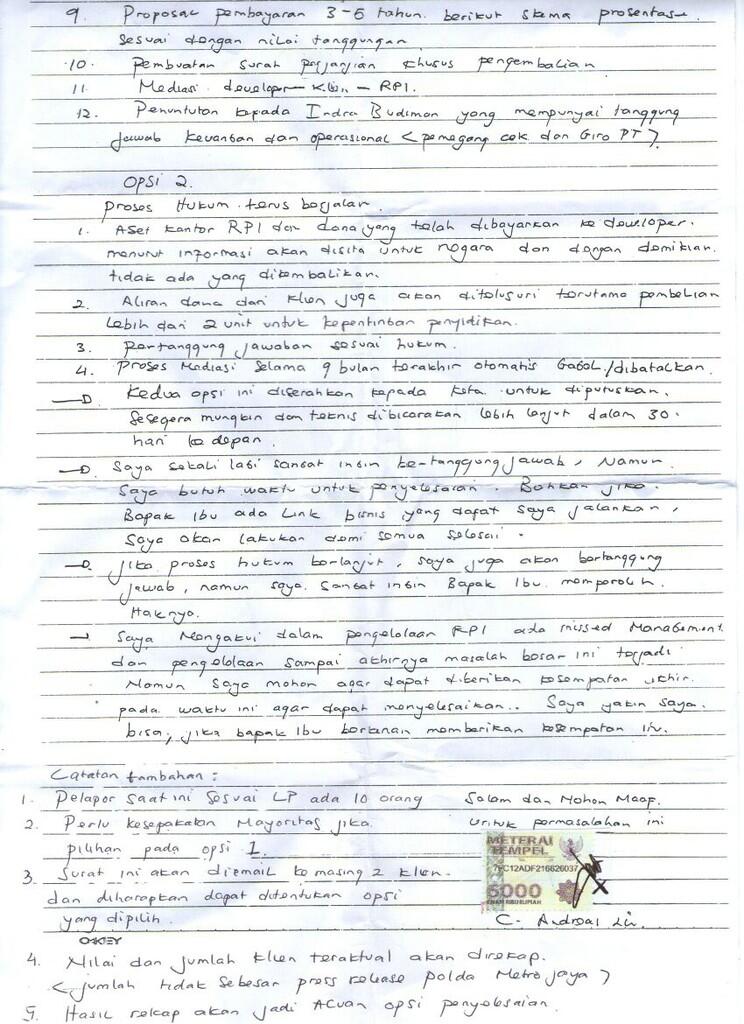 9. Proposal pembayaran 3-5 tahun. berikut skema prosentase.
sesuai dengan nilai tanggungan.
10. Pembuatan surat perjanjian khusus pengembalian
11. Mediasi developer - Klien - RPI.
12. Penuntutan kepada Indra Budiman yang mempunyai tanggung
jawab keuangan dan operasional < pemegang cek dan Giro PT >
OPSI 2.
Proses Hukum terus berjalan.
1. Aset kantor RPI dan dana yang telah dibayarkan ke developer.
menurut informasi akan disita untuk negara dan dengan demikian.
tidak ada yang dikembalikan.
2. Aliran dana dari klien juga akan ditelusuri terutama pembelian
lebih dari 2 unit untuk kepentingan penyidikan.
3. Pertanggung jawaban sesuai hukum.
4. Proses Mediasi selama 9 bulan terakhir otomatis Gagal/dibatalkan.
Kedua opsi ini diserahkan kepada kita untuk diputuskan.
Sesegera mungkin dan teknis dibicarakan lebih lanjut dalam 30.
hari ke depan.
Saya sekali lagi sangat ingin ber-tanggung jawab, Namun
Saya butuh waktu untuk penyelesaian. Bahkan jika
Bapak Ibu ada Link bisnis yang dapat saya jalankan,
Saya akan lakukan demi semua selesai.
Jika proses hukum berlanjut, saya juga akan bertanggung
jawab, namun saya sangat ingin Bapak Ibu memperoleh
Haknya.
Saya Mengakui dalam pengelolaan RPI ada missed Management
dan pengelolaan sampai akhirnya masalah besar ini terjadi
Namun Saya mohon agar dapat diberikan kesempatan akhir
pada waktu ini agar dapat menyelesaikan.. Saya yakin saya.
bisa, jika bapak Ibu berkenan memberikan kesempatan itu.
Catatan tambahan :
1. Pelapor saat ini sesuai LP ada 10 orang
Salam dan Mohon Maaf.
2. Perlu kesepakatan Mayoritas jika
untuk permasalahan ini
pilihan pada opsi 1.
METERAI
TEMPEL
7FC12ADF216626037
6000
ENAM RIBU RUPIAH
3. Surat ini akan diemail ke masing2 klien.
dan diharapkan dapat ditentukan opsi
yang dipilih.
C. Andreas
4. Nilai dan jumlah klien teraktual akan direkap.
< jumlah tidak sebesar press release polda Metro jaya >
5. Hasil rekap akan jadi Acuan opsi penyelesaian.